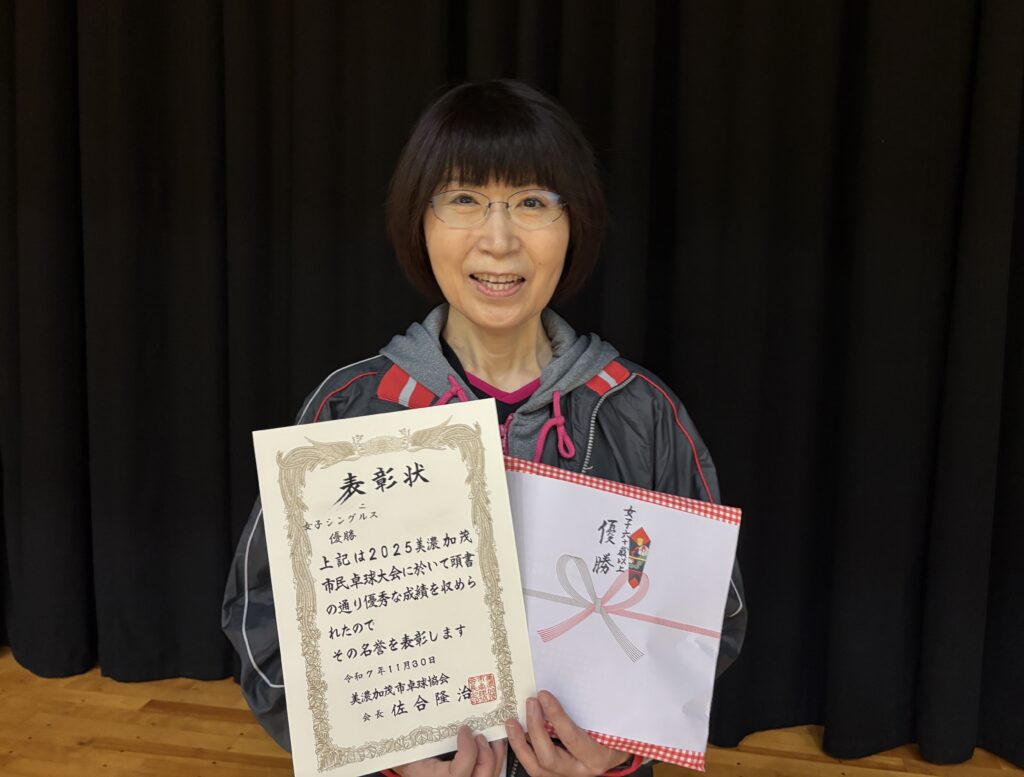 表彰状
二
女子シングルス
優勝
上記は2025美濃加茂
市民卓球大会に於いて頭書
の通り優秀な成績を収めら
れたので
その名誉を表彰します
令和7年11月30日
美濃加茂市卓球協会
会長 佐合隆治
女子六十歳以上
優勝